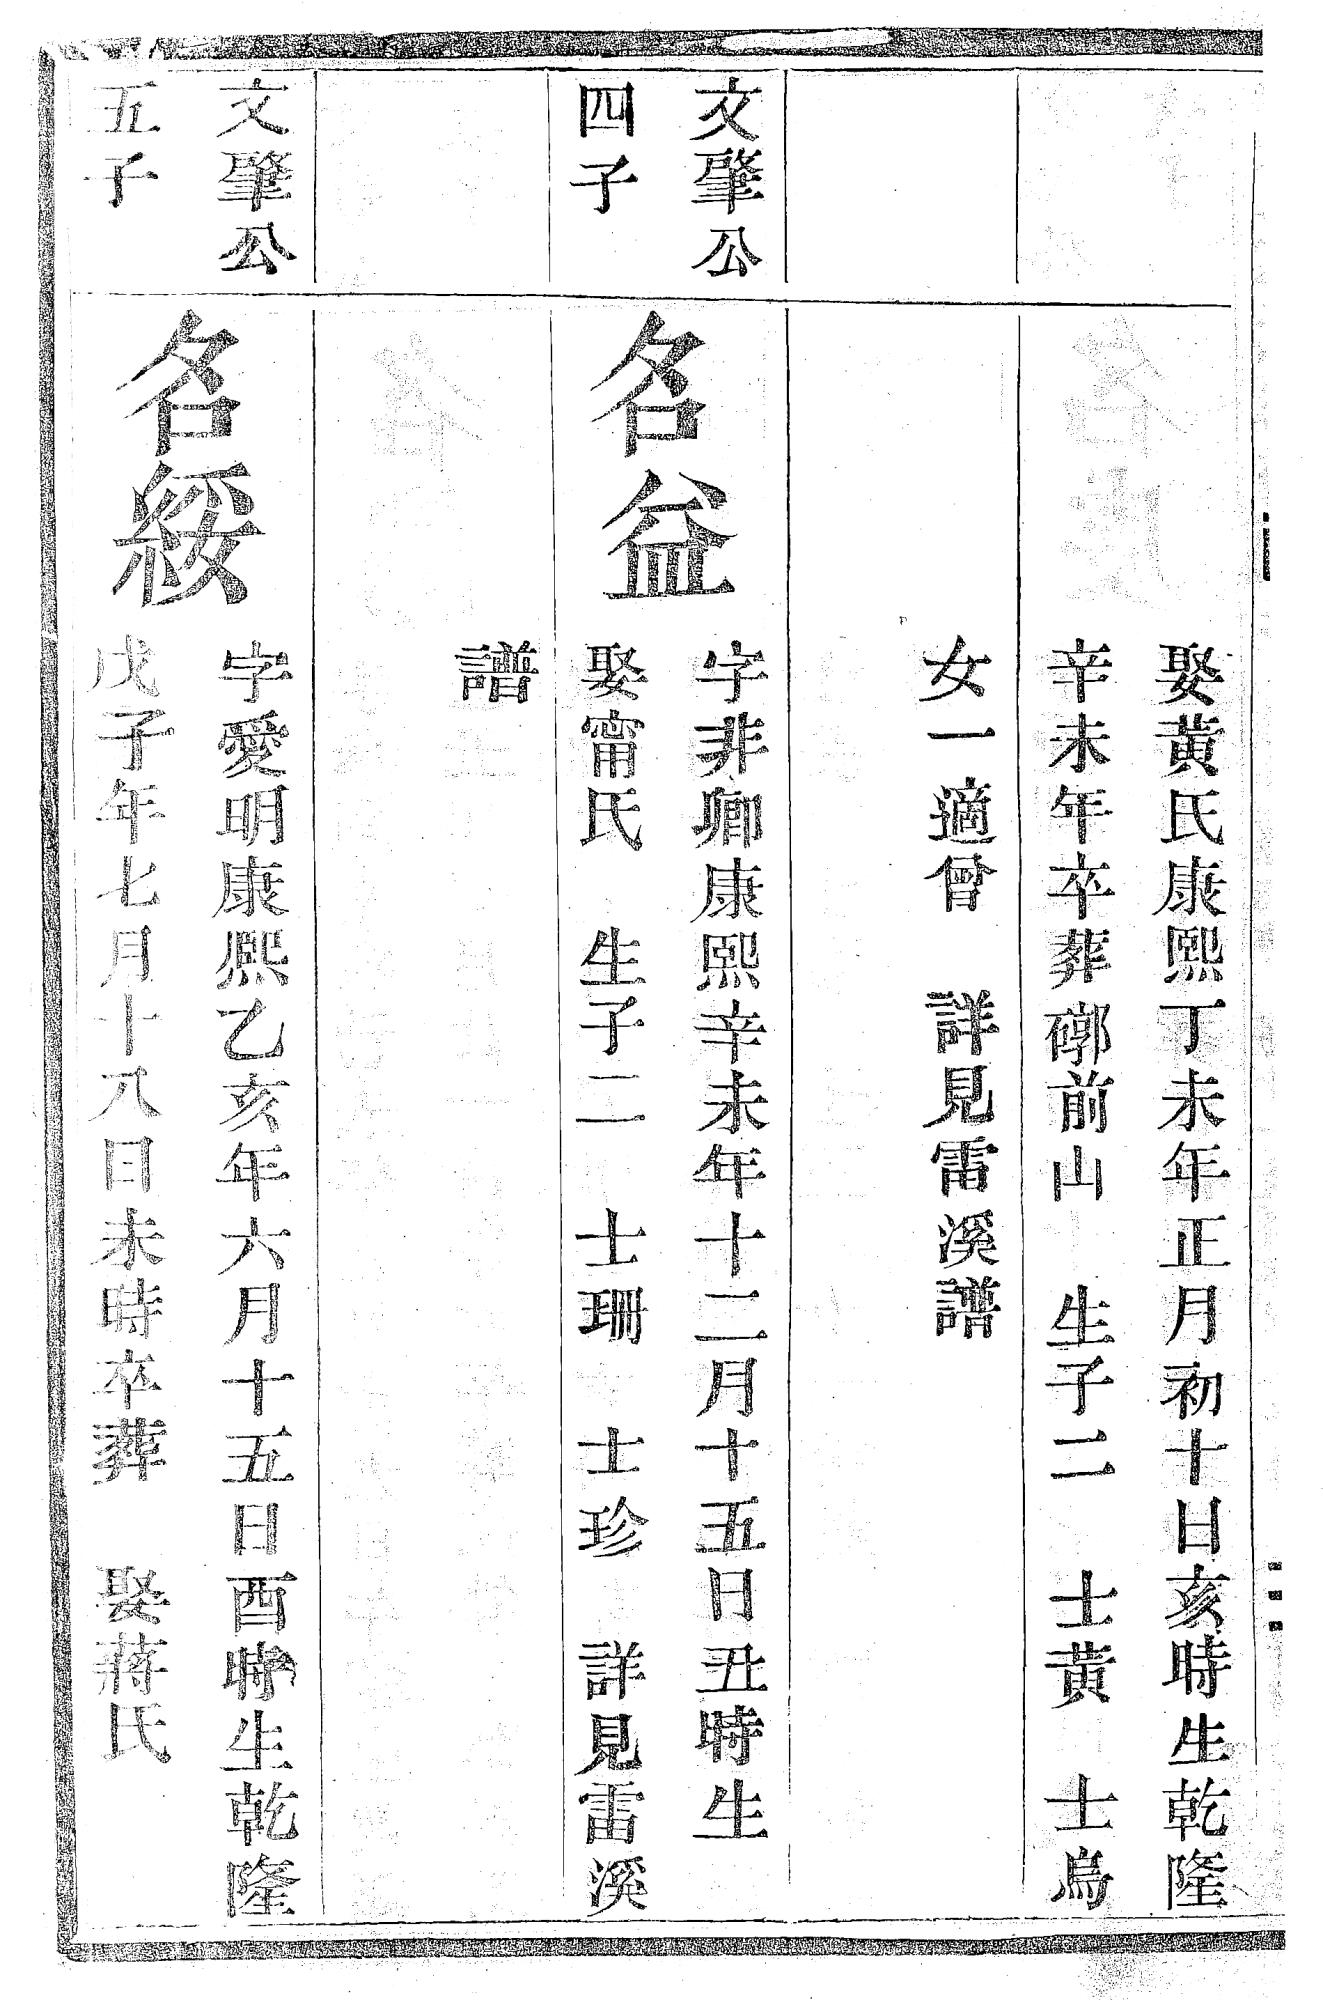 娶黃氏康熙丁未年正月初十日亥時生乾隆
辛未年卒葬鄩前山　生子二　士黃　士烏
女一適曾　詳見雷溪譜
文肇公
四子
名益
字非卿康熙辛未年十二月十五日丑時生
娶甯氏　生子二　士珊　士珍　詳見雷溪
譜
文肇公
五子
名綏
字愛明康熙乙亥年六月十五日酉時生乾隆
戊子年七月十八日未時卒葬　娶蔣氏